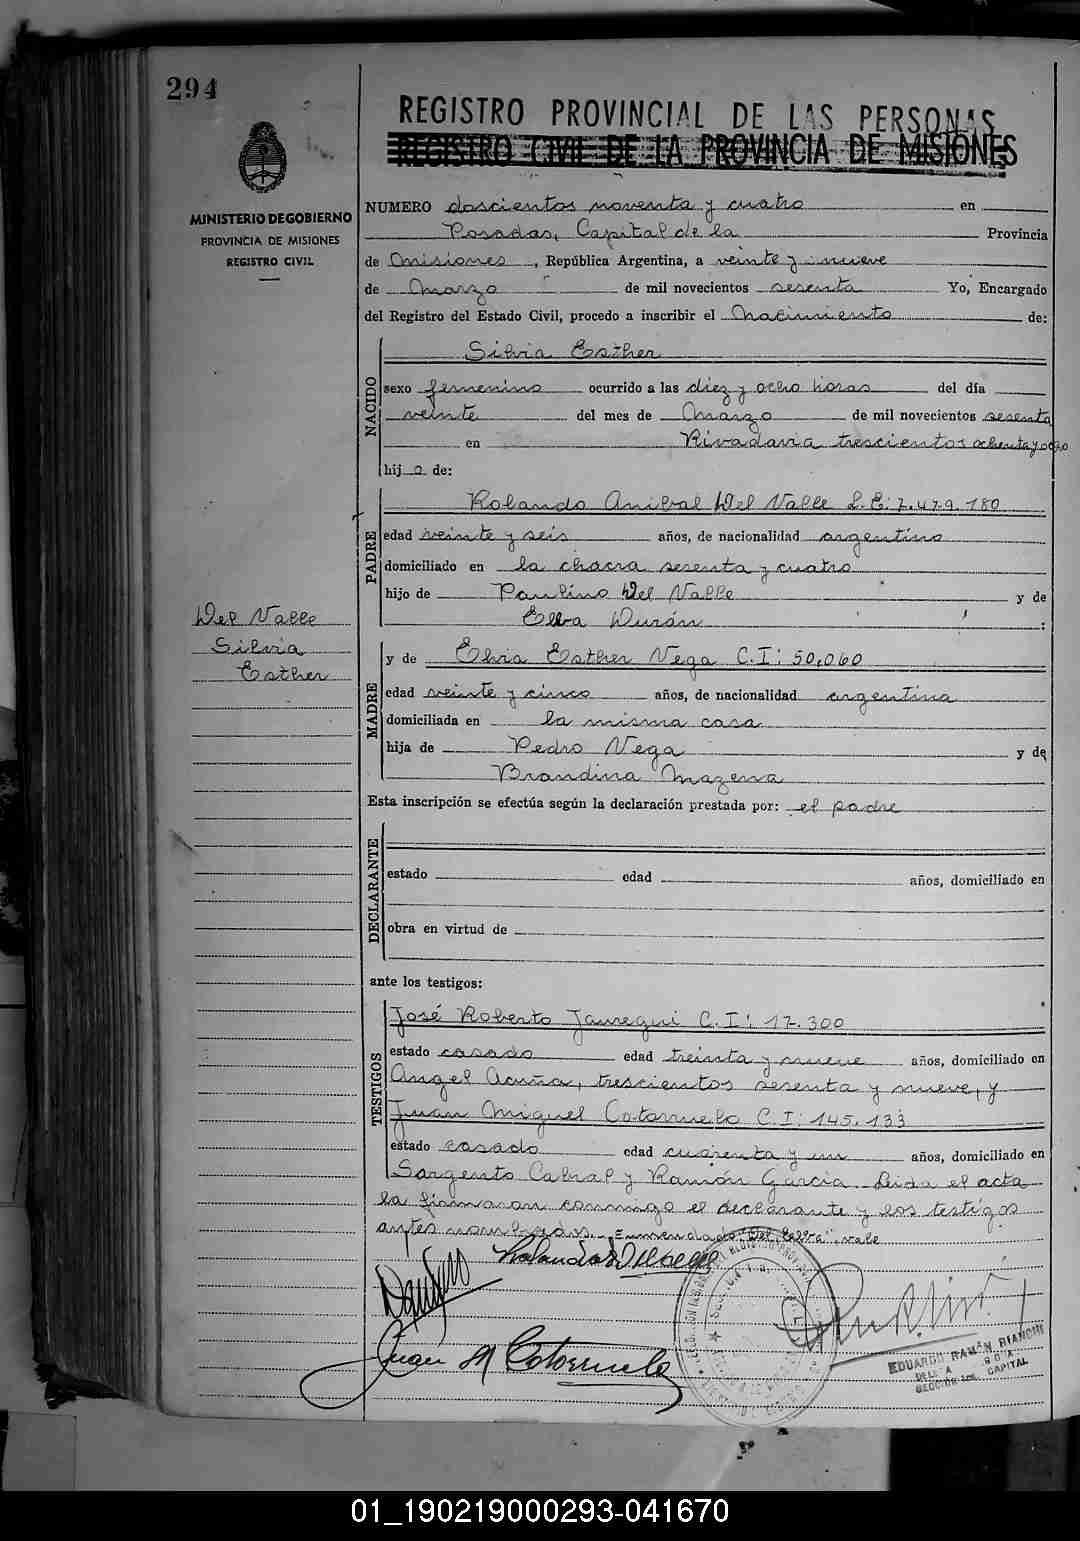 294
REGISTRO PROVINCIAL DE LAS PERSONAS
REGISTRO CIVIL DE LA PROVINCIA DE MISIONES
MINISTERIO DE GOBIERNO
PROVINCIA DE MISIONES
REGISTRO CIVIL
NUMERO doscientos noventa y cuatro en
Posadas, Capital de la Provincia
de Misiones, República Argentina, a veinte y nueve
de Marzo de mil novecientos sesenta Yo, Encargado
del Registro del Estado Civil, procedo a inscribir el Nacimiento de:
NACIDO
Silvia Esther
sexo femenino ocurrido a las diez y ocho horas del día
veinte del mes de Marzo de mil novecientos sesenta
en Rivadavia trescientos ochenta y ocho
hij a de:
PADRE
Rolando Anibal Del Valle L.E: 7.479.180
edad veinte y seis años, de nacionalidad argentino
domiciliado en la chacra sesenta y cuatro
hijo de Paulino Del Valle y de
Elba Durán :
Del Valle
Silvia
Esther
MADRE
y de Elvia Esther Vega C.I: 50,060
edad veinte y cinco años, de nacionalidad argentina
domiciliada en la misma casa
hija de Pedro Vega y de
Brandina
Esta inscripción se efectúa según la declaración prestada por: el padre
DECLARANTE
estado edad años, domiciliado en
obra en virtud de
ante los testigos:
TESTIGOS
José Roberto Jauregui C.I: 17.300
estado casado edad treinta y nueve años, domiciliado en
Angel Acuña, trescientos sesenta y nueve, y
Juan Miguel Cotorruelo C.I: 145.133
estado casado edad cuarenta y un años, domiciliado en
Sargento Cabral y Ramón García. Leida el acta
la firmaron conmigo el declarante y los testigos
antes nombrados. Enmendado: "Del", vale
Juan M Cotorruelo
EDUARDO RAMÓN BIANCHI
CAPITAL
01_190219000293-041670